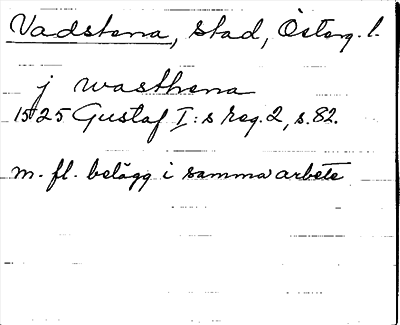 Vadstena, stad, Österg. l.
j wasthena
1525 Gustaf I:s reg. 2, s. 82.
m. fl. belägg i samma arbete